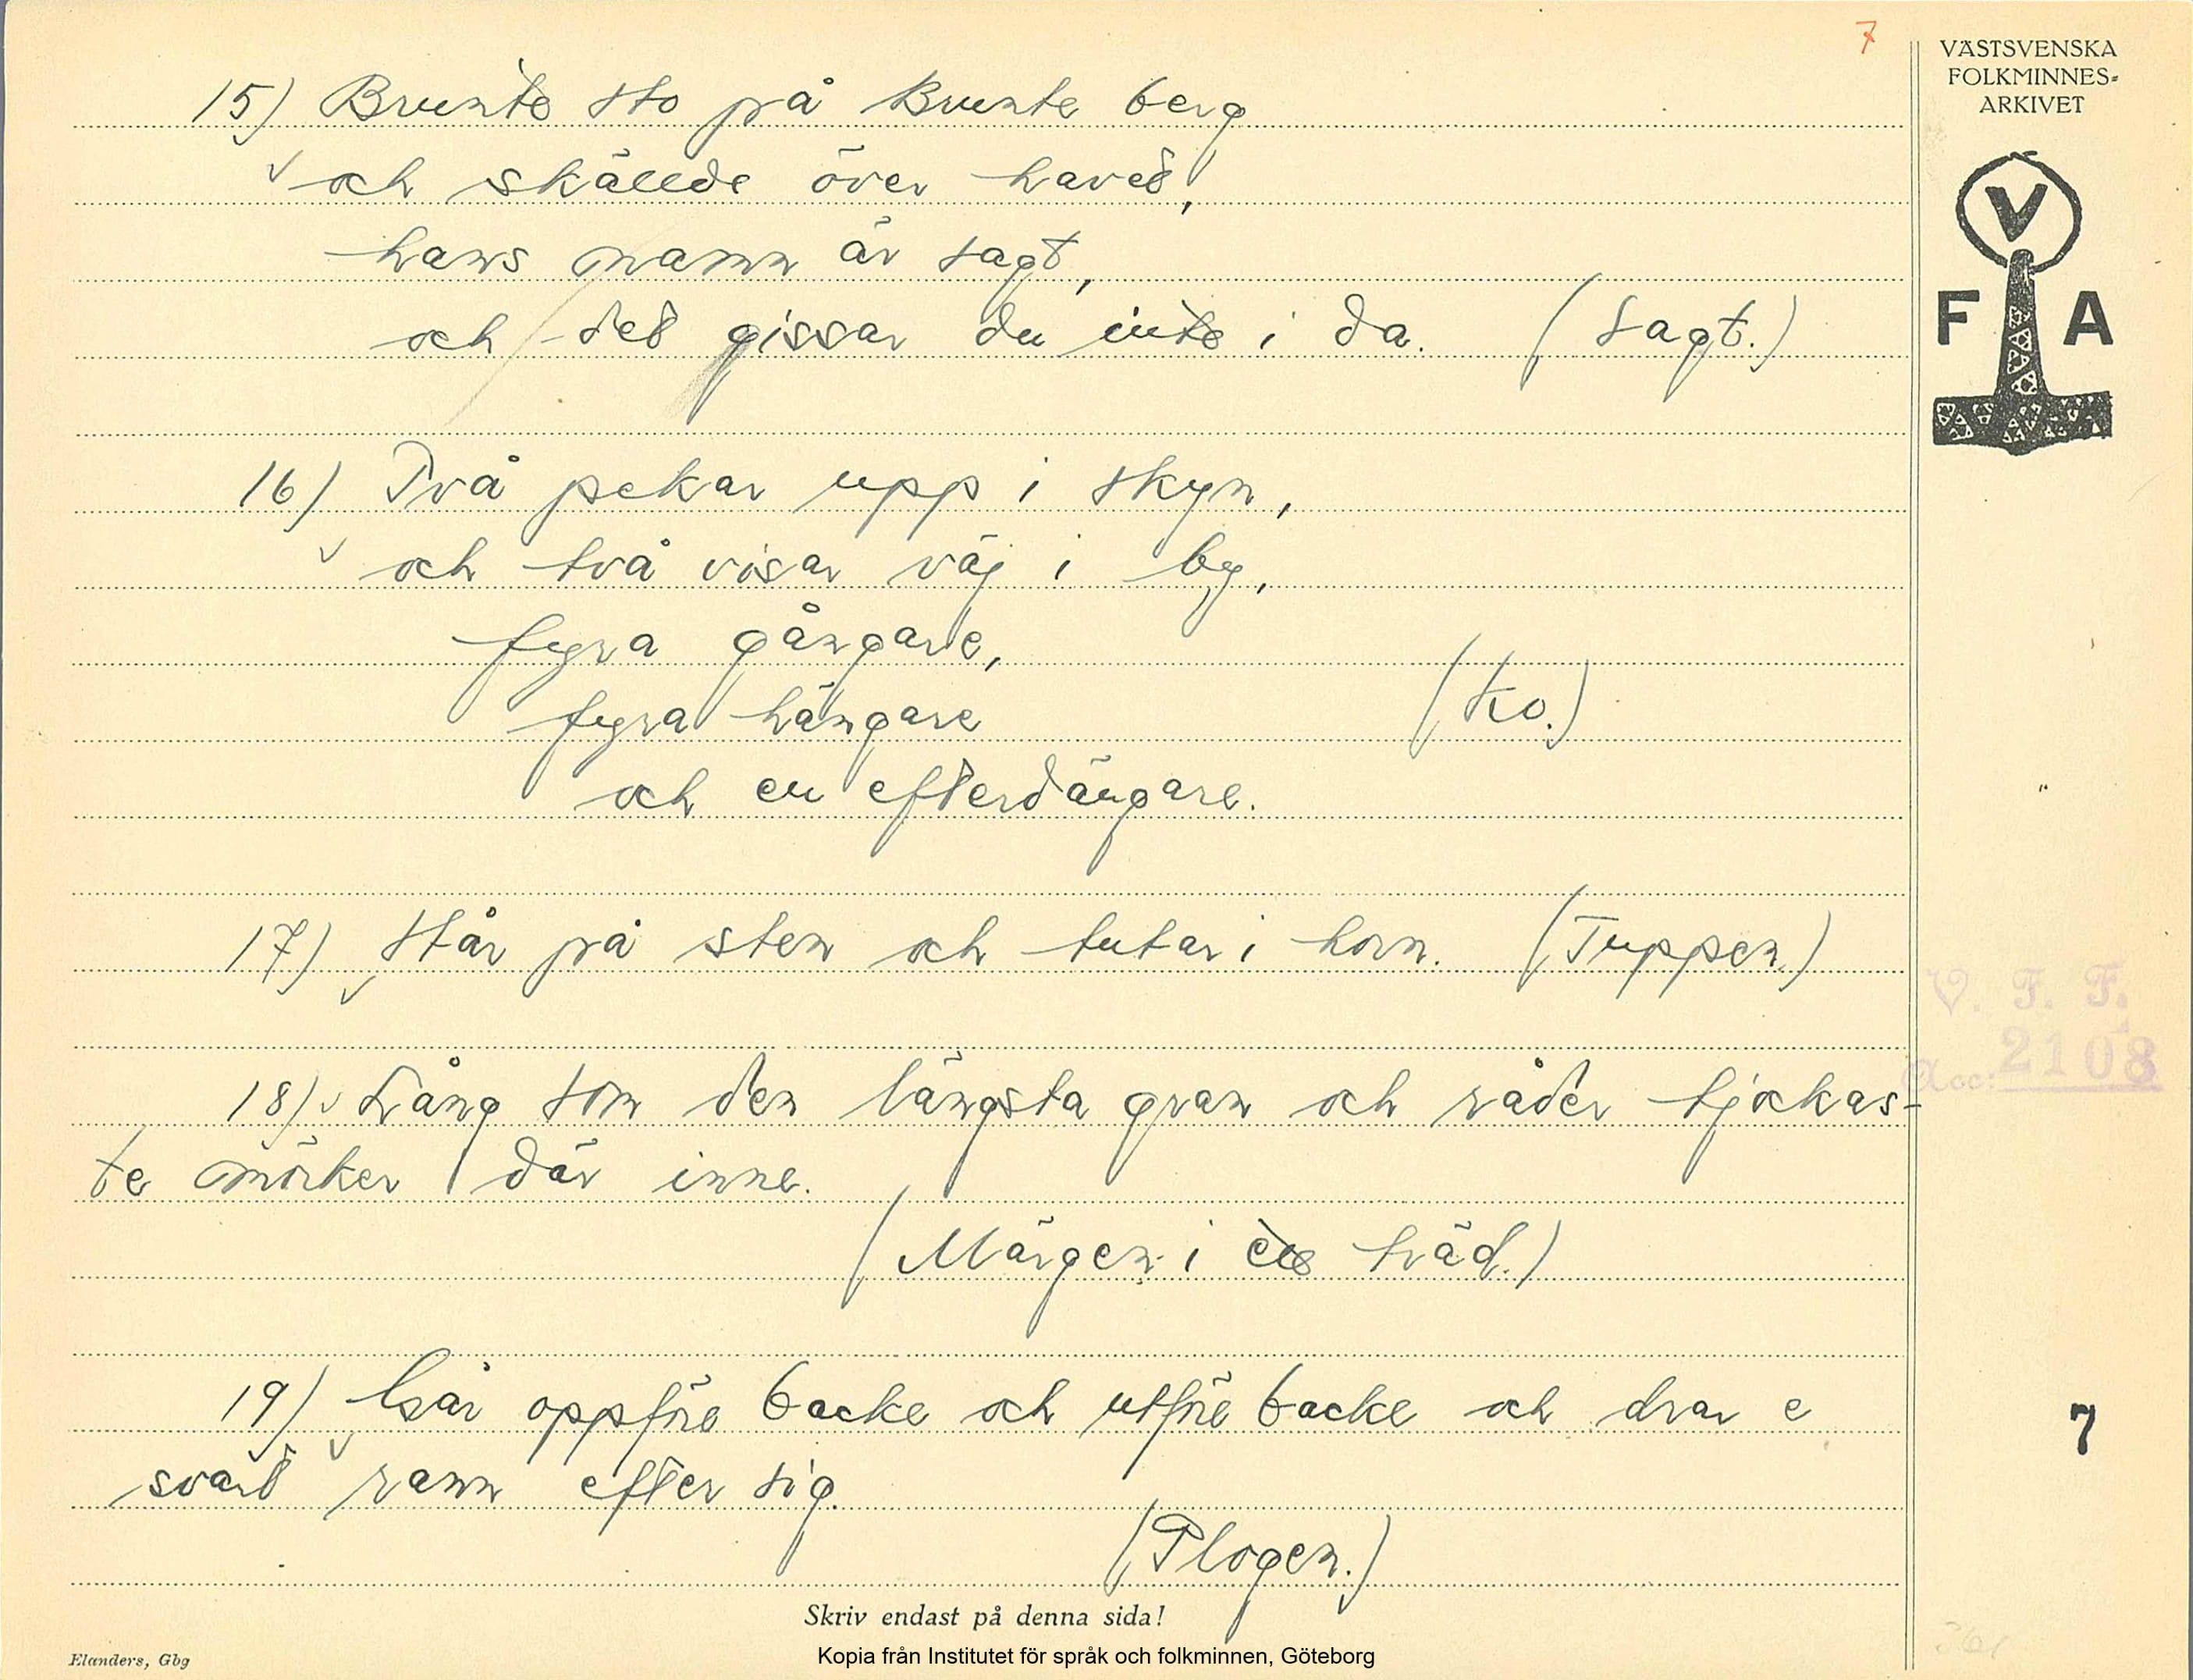 7
VÄSTSVENSKA
FOLKMINNES-
ARKIVET
V
F A
15) Brunte sto på Brunte berg
och skällde över haved,
hans namn är sagt,
och ded gissar du inte i da. (Sagt.)
16) Två pekar upp i skyn,
och två visar väj i by,
fyra gångare,
fyra hängare (Ko.)
och en efterdängare.
17) Står på sten och tutar i horn. (Tuppen)
V. F. F.
Acc: 2108
18) Lång som den längsta gran och råder tjockas-
te mörker där inne.
(Märgen i ett träd.)
19) Går oppföre backe och utföre backe och drar e
svart rann efter sig.
7
(Plogen.)
Skriv endast på denna sida!
Elanders, Gbg
Kopia från Institutet för språk och folkminnen, Göteborg